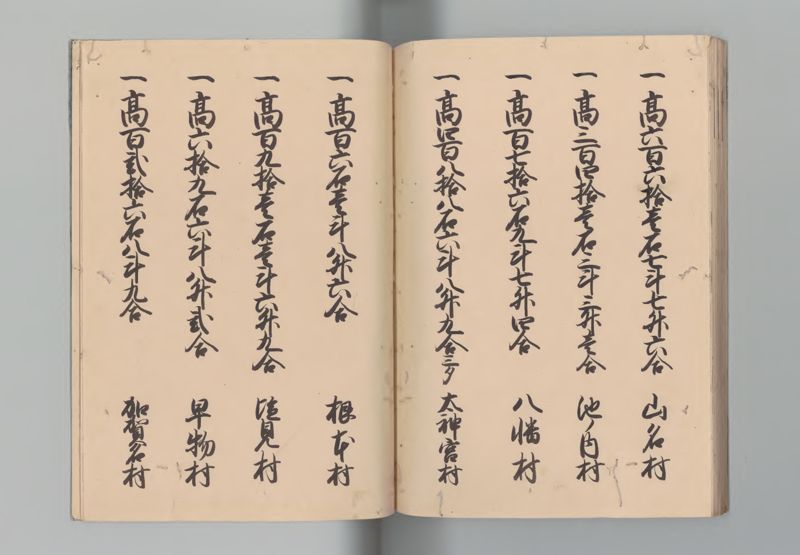 一高六百六拾壱石七斗七升六合 山名村
一高三百四拾壱石二斗三升壱合 池ノ内村
一高百七拾六石九斗七升四合 八幡村
一高四百八拾八石六斗八升九合三夕 太神宮村
一高百六石壱斗八升六合 根本村
一高百九拾壱石壱斗六升九合 見村
一高六拾九石六斗八升弐合 早物村
一高百弐拾六石八斗九合 加賀名村